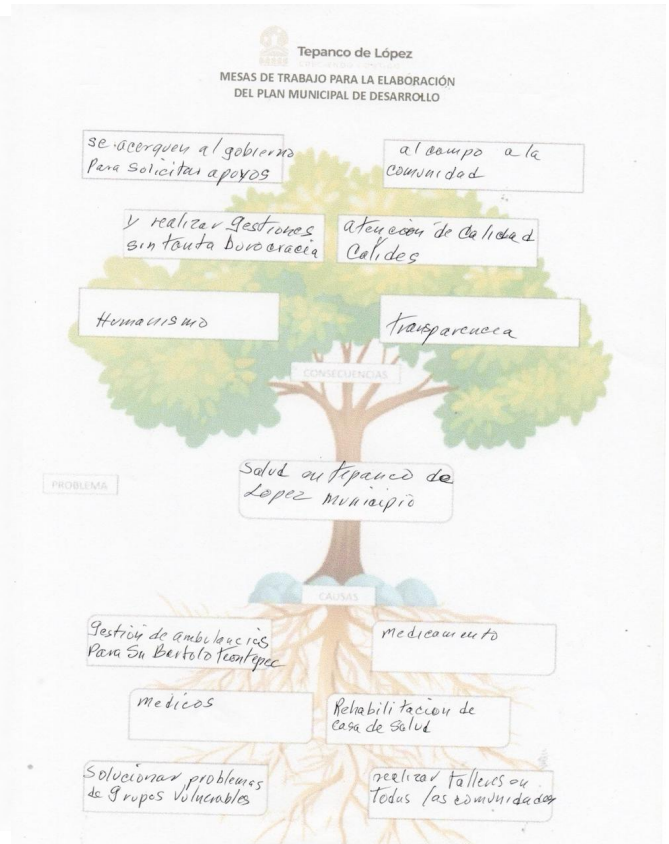 Tepanco de López
MESAS DE TRABAJO PARA LA ELABORACIÓN
DEL PLAN MUNICIPAL DE DESARROLLO
se acerquen al gobierno
Para Solicitar apoyos
al campo a la
comunidad
y realizar gestiones
sin tanta burocracia
atención de Calidad
Calides
Humanismo
transparencia
CONSECUENCIAS
PROBLEMA
Salud en tepanco de
Lopez Municipio
CAUSAS
gestión de ambulancias
Para Sn Bartolo teontepec
medicamento
medicos
Rehabilitacion de
casa de Salud
Solucionar problemas
de grupos vulnerables
realizar talleres en
Todas las comunidades